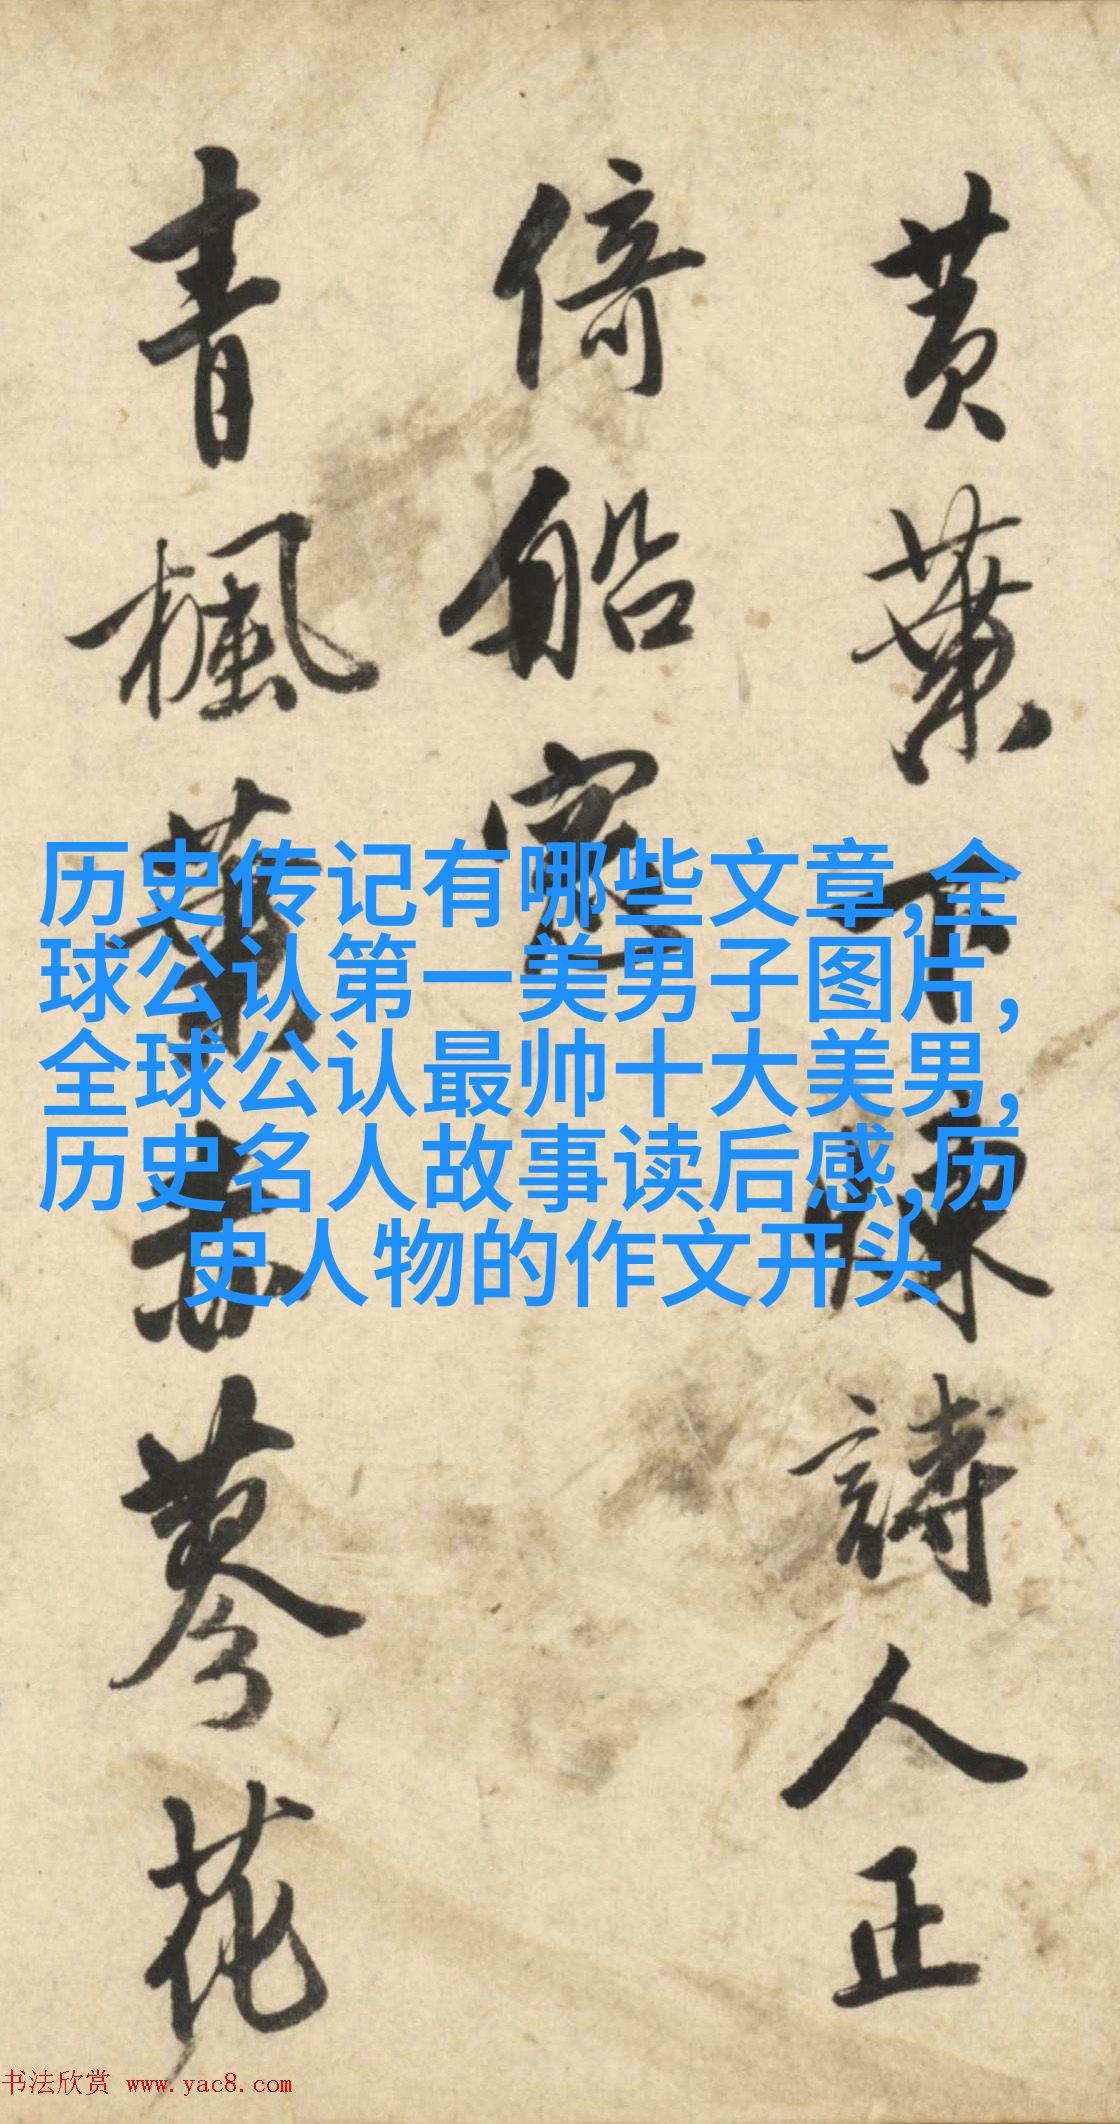 黄葉下詩人正
倚船窓
青楓蓼花
历史传记有哪些文章,全
球公认第一美男子图片,
全球公认最帅十大美男,
历史名人故事读后感,历
史人物的作文开头
书法欣赏 www.yac8.com